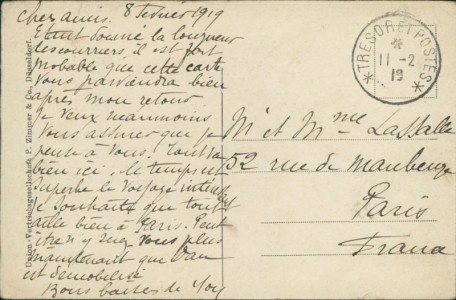 Chers amis. 8 Février 1919
Etant donné la longueur
des courriers, il est fort
probable que cette carte
vous parviendra bien
après mon retour
je veux néanmoins
vous assurer que je
pense à vous. Tout va
bien ici. le temps est
superbe le voyage
je souhaite que tout
aille bien à Paris. Peut
être n'y a vous plus
maintenant que
est démobilisé
Bons baisers de
TRESOR ET POSTES
11-2
19
Mr et Mme Lassalle
52 rue de Maubeuge
Paris
France
Union-Vertriebsgesellschaft P. Zimmer & Co., Düsseldorf.